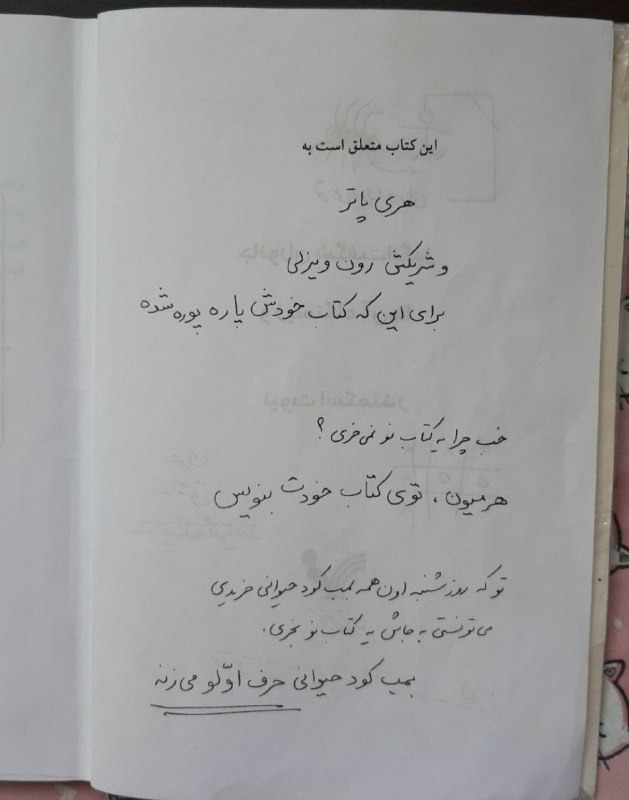 این کتاب متعلق است به
هری پاتر
و شریکش رون ویزلی
برای این که کتاب خودش پاره پوره شده
خب چرا یه کتاب نو نمی خری ؟
هرمیون ، توی کتاب خودت بنویس
تو که روز شنبه اون همه بمب کود حیوانی خریدی
می تونستی به جاش یه کتاب نو بخری .
بمب کود حیوانی حرف اوّلو می زنه